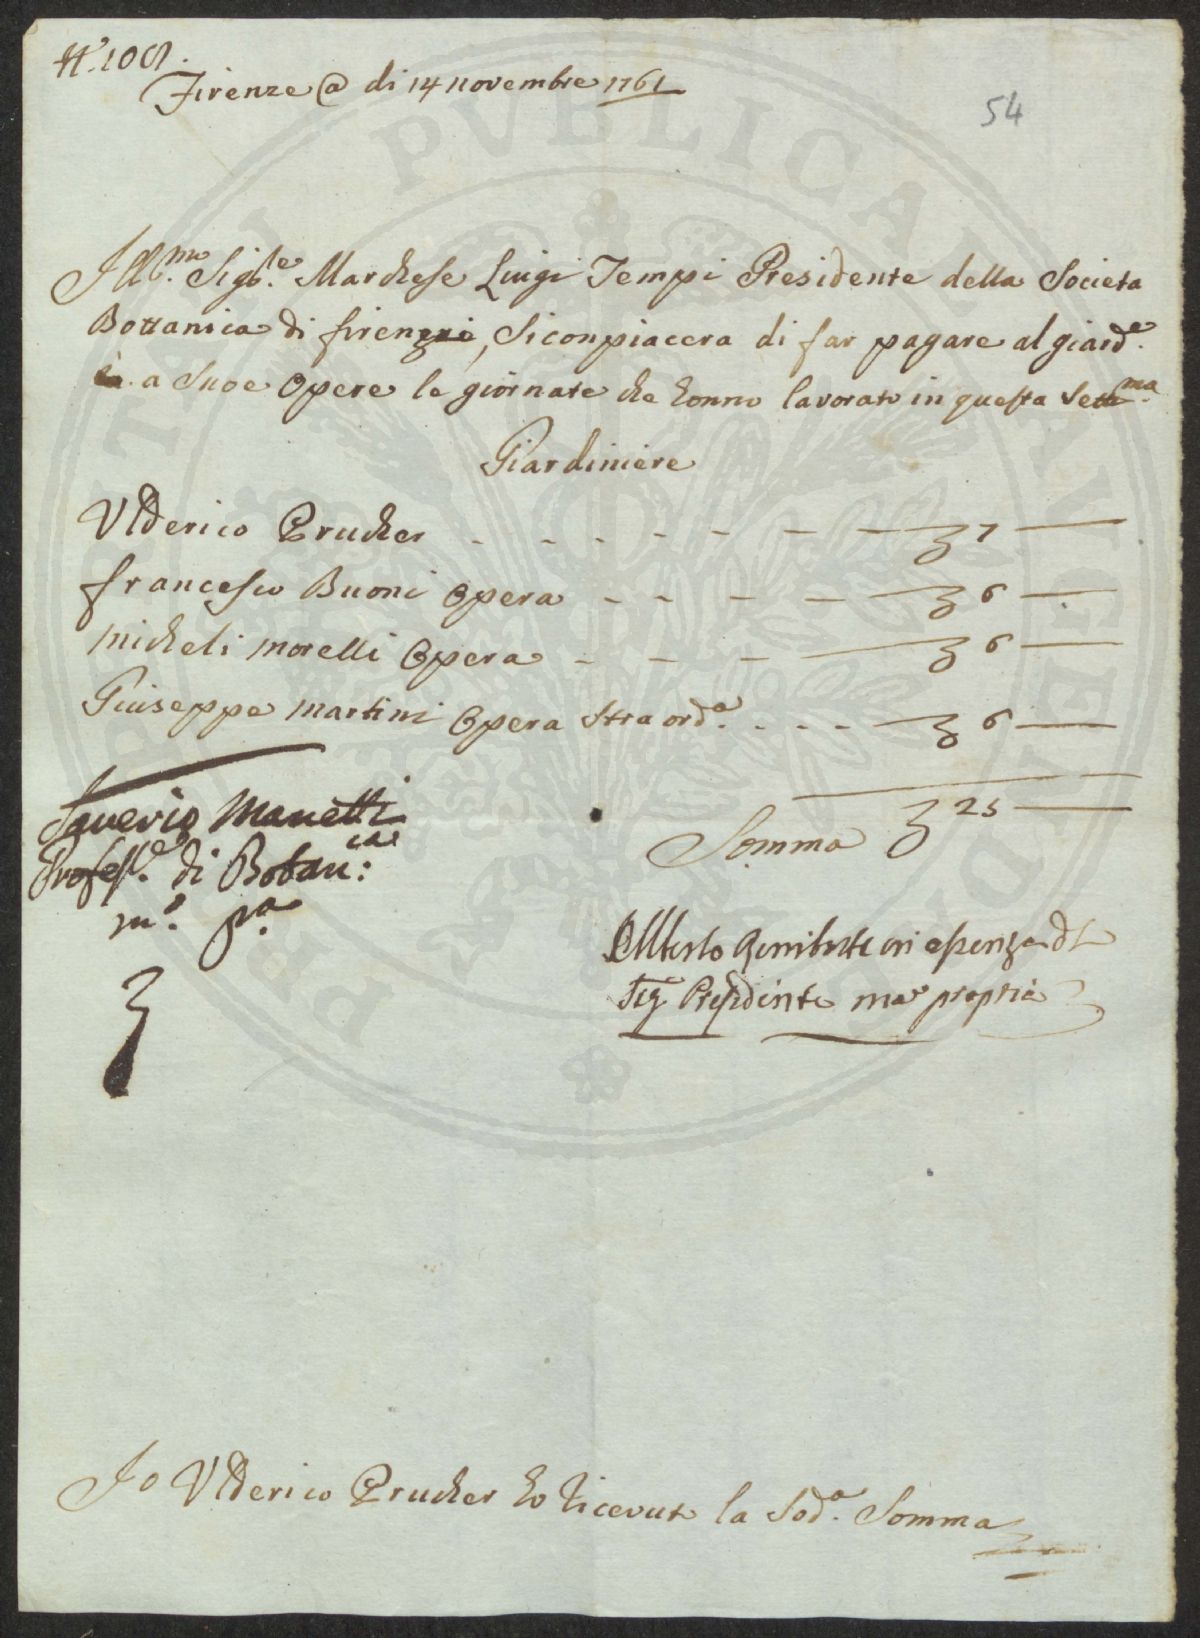 N.° 108.
Firenze @ di 14 novembre 1761
54
Ill.mo Sigl.e Marchese Luigi Tempi Presidente della Societa
Bottanica di firenze, Siconpiacera di far pagare al giard.e
e a Suoe Opere le giornate che honno lavorato in questa Sett.ma
Giardiniere
Ulderico Prucher - - - - - - - 7
francesco Buoni Opera - - - - - 6
micheli morelli Opera - - - - 6
Giuseppe martini Opera Straord.a - - - - 6
Somma 25
Saverio Manetti
Profess.e di Botan:ica
m.o p.a
Alberto in asenza dl
Sig Presidente mao propria
Io Ulderico Prucher ho Ricevuto la Sod.a Somma
PVBLICAE VIGILI